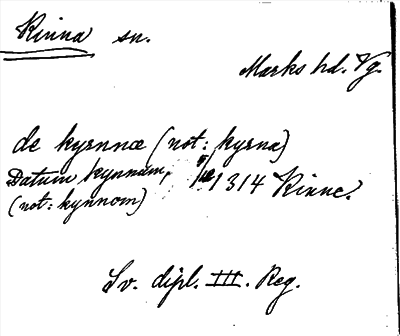 Kinna sn.
Marks hd. Vg.
de kyrnnæ (not: kyrna)
Datum kynnum, 1314 Kinne.
(not: kynnom)
Sv. dipl. III. Reg.